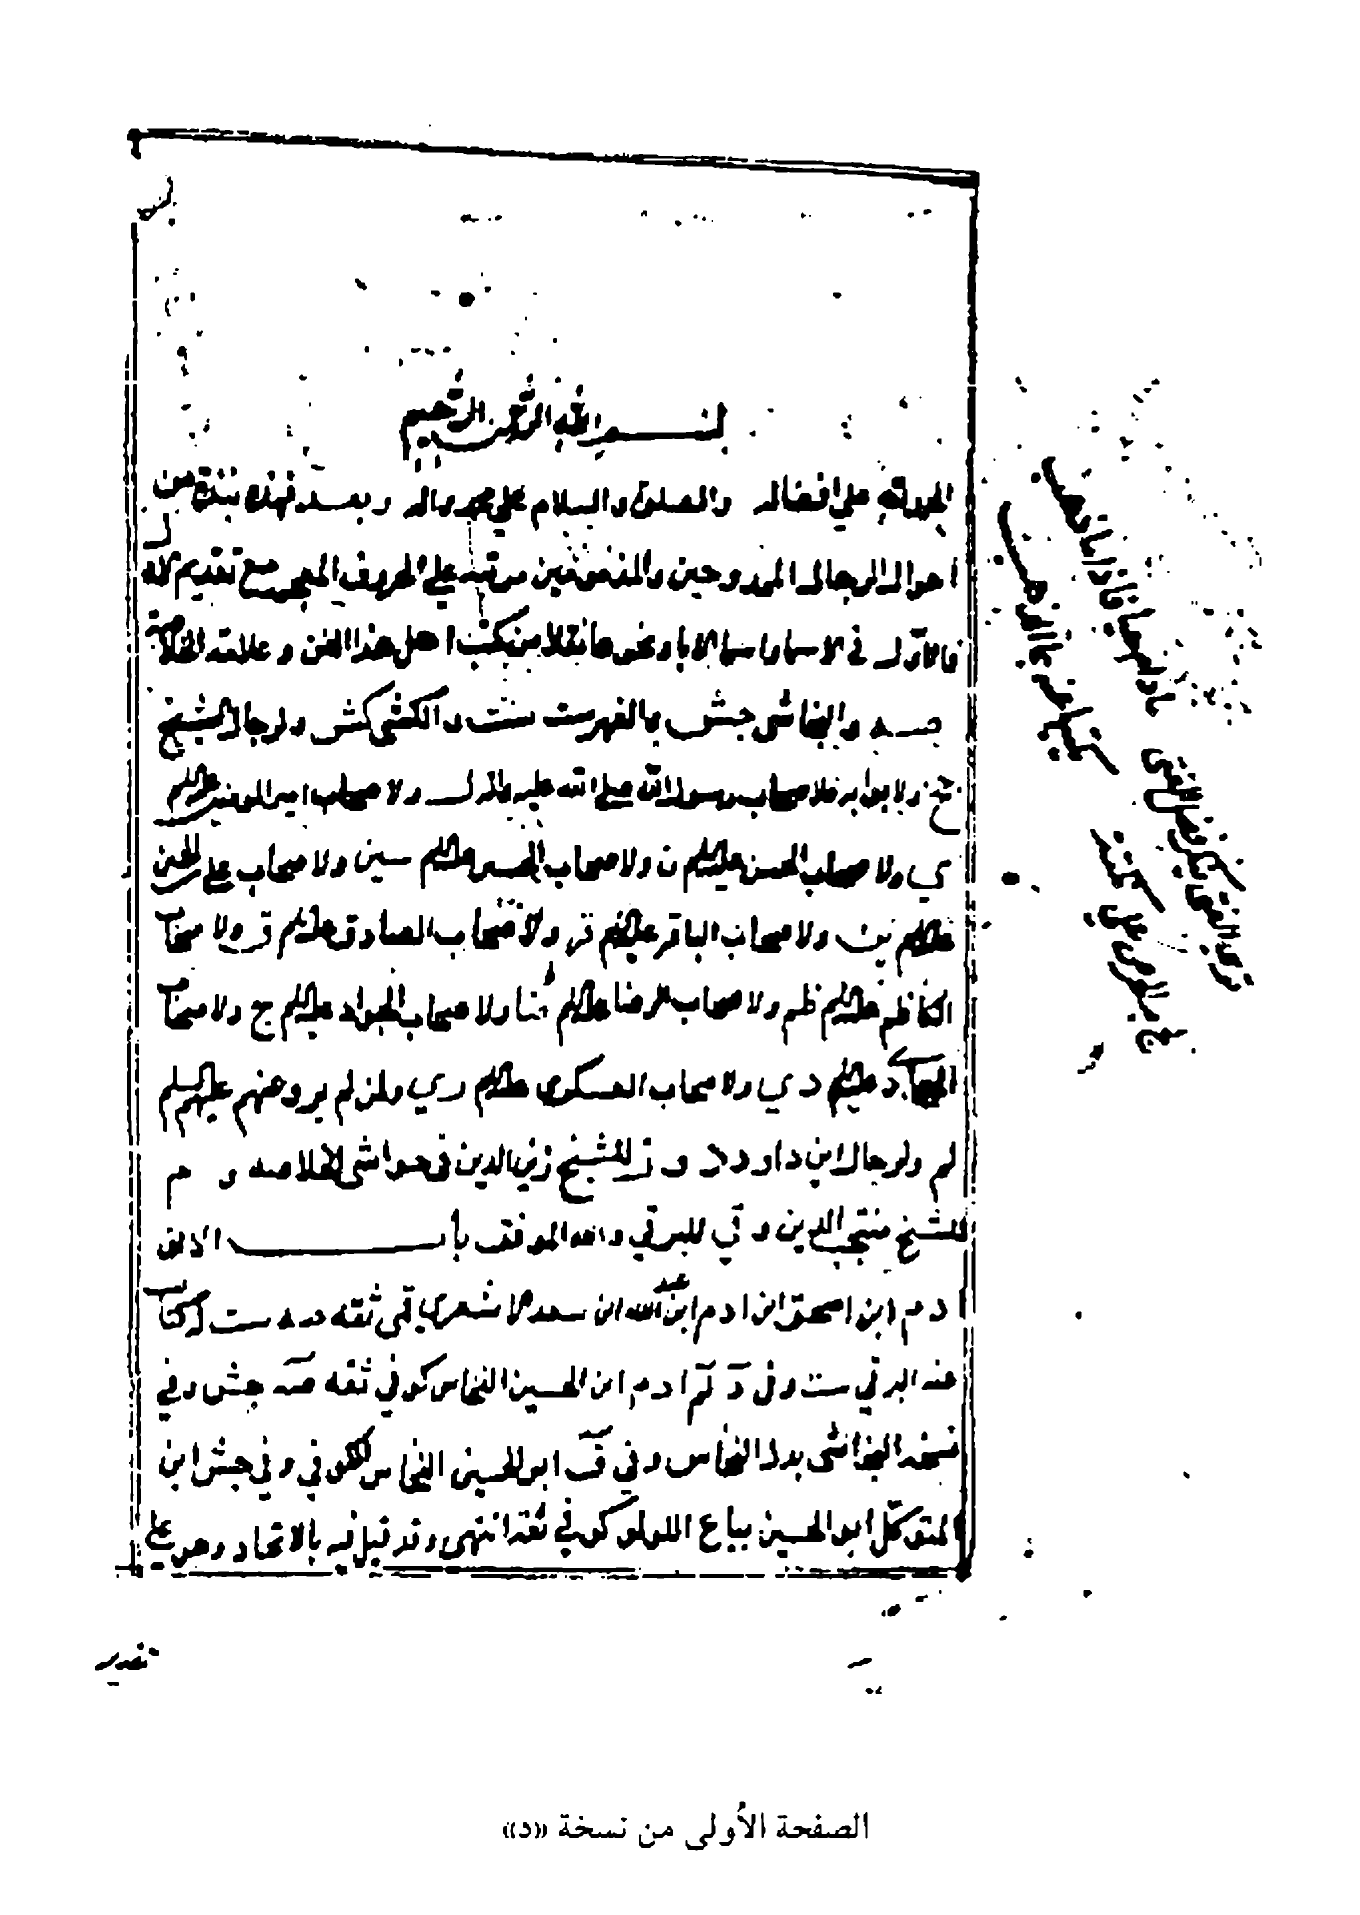 بسم الله الرحمن الرحيم
الحمد لله على افضاله والصلوة والسلام على محمد وآله وبعد فهذه نبذة من
احوال الرجال الممدوحين والمذمومين مرتبة على الحروف المعجم مع تقديم الاول
فالاول في الاسما واسما الابا ونحوها نقلا من كتب اهل هذا الفن وعلامة الخلاصة
صه والنجاشي جش والفهرست ست والكشي كش ولرجال الشيخ
جخ ولابوابه فلاصحاب رسول الله صلى الله عليه وآله ل ولاصحاب امير المومنين عليه السلم
ي ولاصحاب الحسن عليه السلم ن ولاصحاب الحسين عليه السلم سين ولاصحاب علي بن الحسين
عليه السلم ين ولاصحاب الباقر عليه السلم قر ولاصحاب الصادق عليه السلم ق ولاصحاب
الكاظم عليه السلم ظم ولاصحاب الرضا عليه السلم ضا ولاصحاب الجواد عليه السلم ج ولاصحاب
الهادي عليه السلم دي ولاصحاب العسكري عليه السلم ري ولمن لم يرو عنهم عليهم السلم
لم ولرجال ابن داود د و للشيخ زين الدين في حواشي الخلاصه و م
للشيخ منتجب الدين و قي للبرقي والله الموفق باب الالف
ادم ابن اسحق ابن ادم ابن عبد الله ابن سعد الاشعري قمي ثقه صه ست له كتاب
عنه البرقي ست وفي د لم ادم ابن الحسين النخاس كوفي ثقه صه جش وفي
نسخه النجاشي بدل النخاس وفي ق ابو الحسين النخاس الكوفي وفي جش ابن
المتوكل ابو الحسين بياع اللولو كوفي ثقه انتهى وقد قيل فيه بالاتحاد وهو على
الصفحة الأولى من نسخة «د»